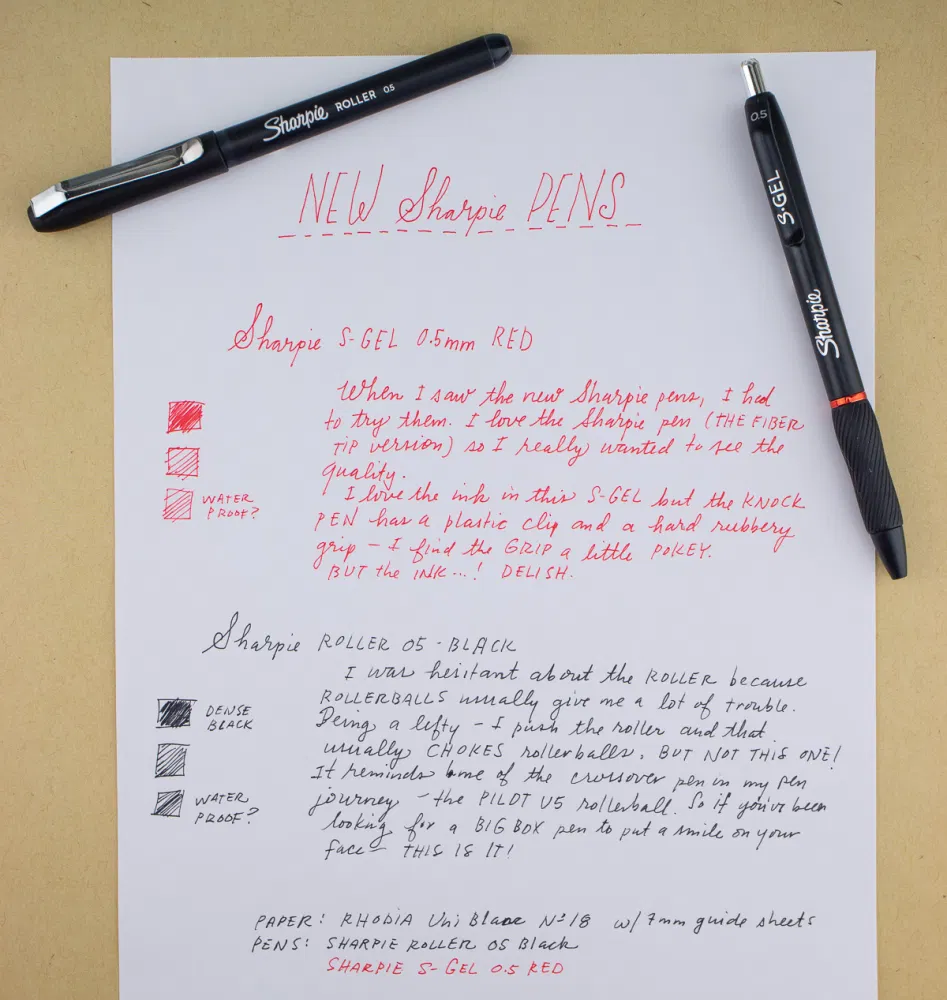 Sharpie ROLLER 0.5
0.5
S·GEL
Sharpie
NEW Sharpie PENS
Sharpie S-GEL 0.5mm RED
When I saw the new Sharpie pens, I had
to try them. I love the Sharpie pen (THE FIBER
TIP VERSION) so I really wanted to see the
quality.
I love the ink in this S-GEL but the KNOCK
PEN has a plastic clip and a hard rubbery
grip – I find the GRIP a little POKEY.
BUT the INK...! DELISH.
WATER
PROOF?
Sharpie ROLLER 05 - BLACK
I was hesitant about the ROLLER because
ROLLERBALLS usually give me a lot of trouble.
Being a lefty – I push the roller and that
usually CHOKES rollerballs. BUT NOT THIS ONE!
It reminds me of the crossover pen in my pen
journey – the PILOT V5 rollerball. So if you've been
looking for a BIG BOX pen to put a smile on your
face – THIS IS IT!
DENSE
BLACK
WATER
PROOF?
PAPER: RHODIA Uni Blanc Nº18 w/ 7mm guide sheets
PENS: SHARPIE ROLLER 05 Black
SHARPIE S-GEL 0.5 RED